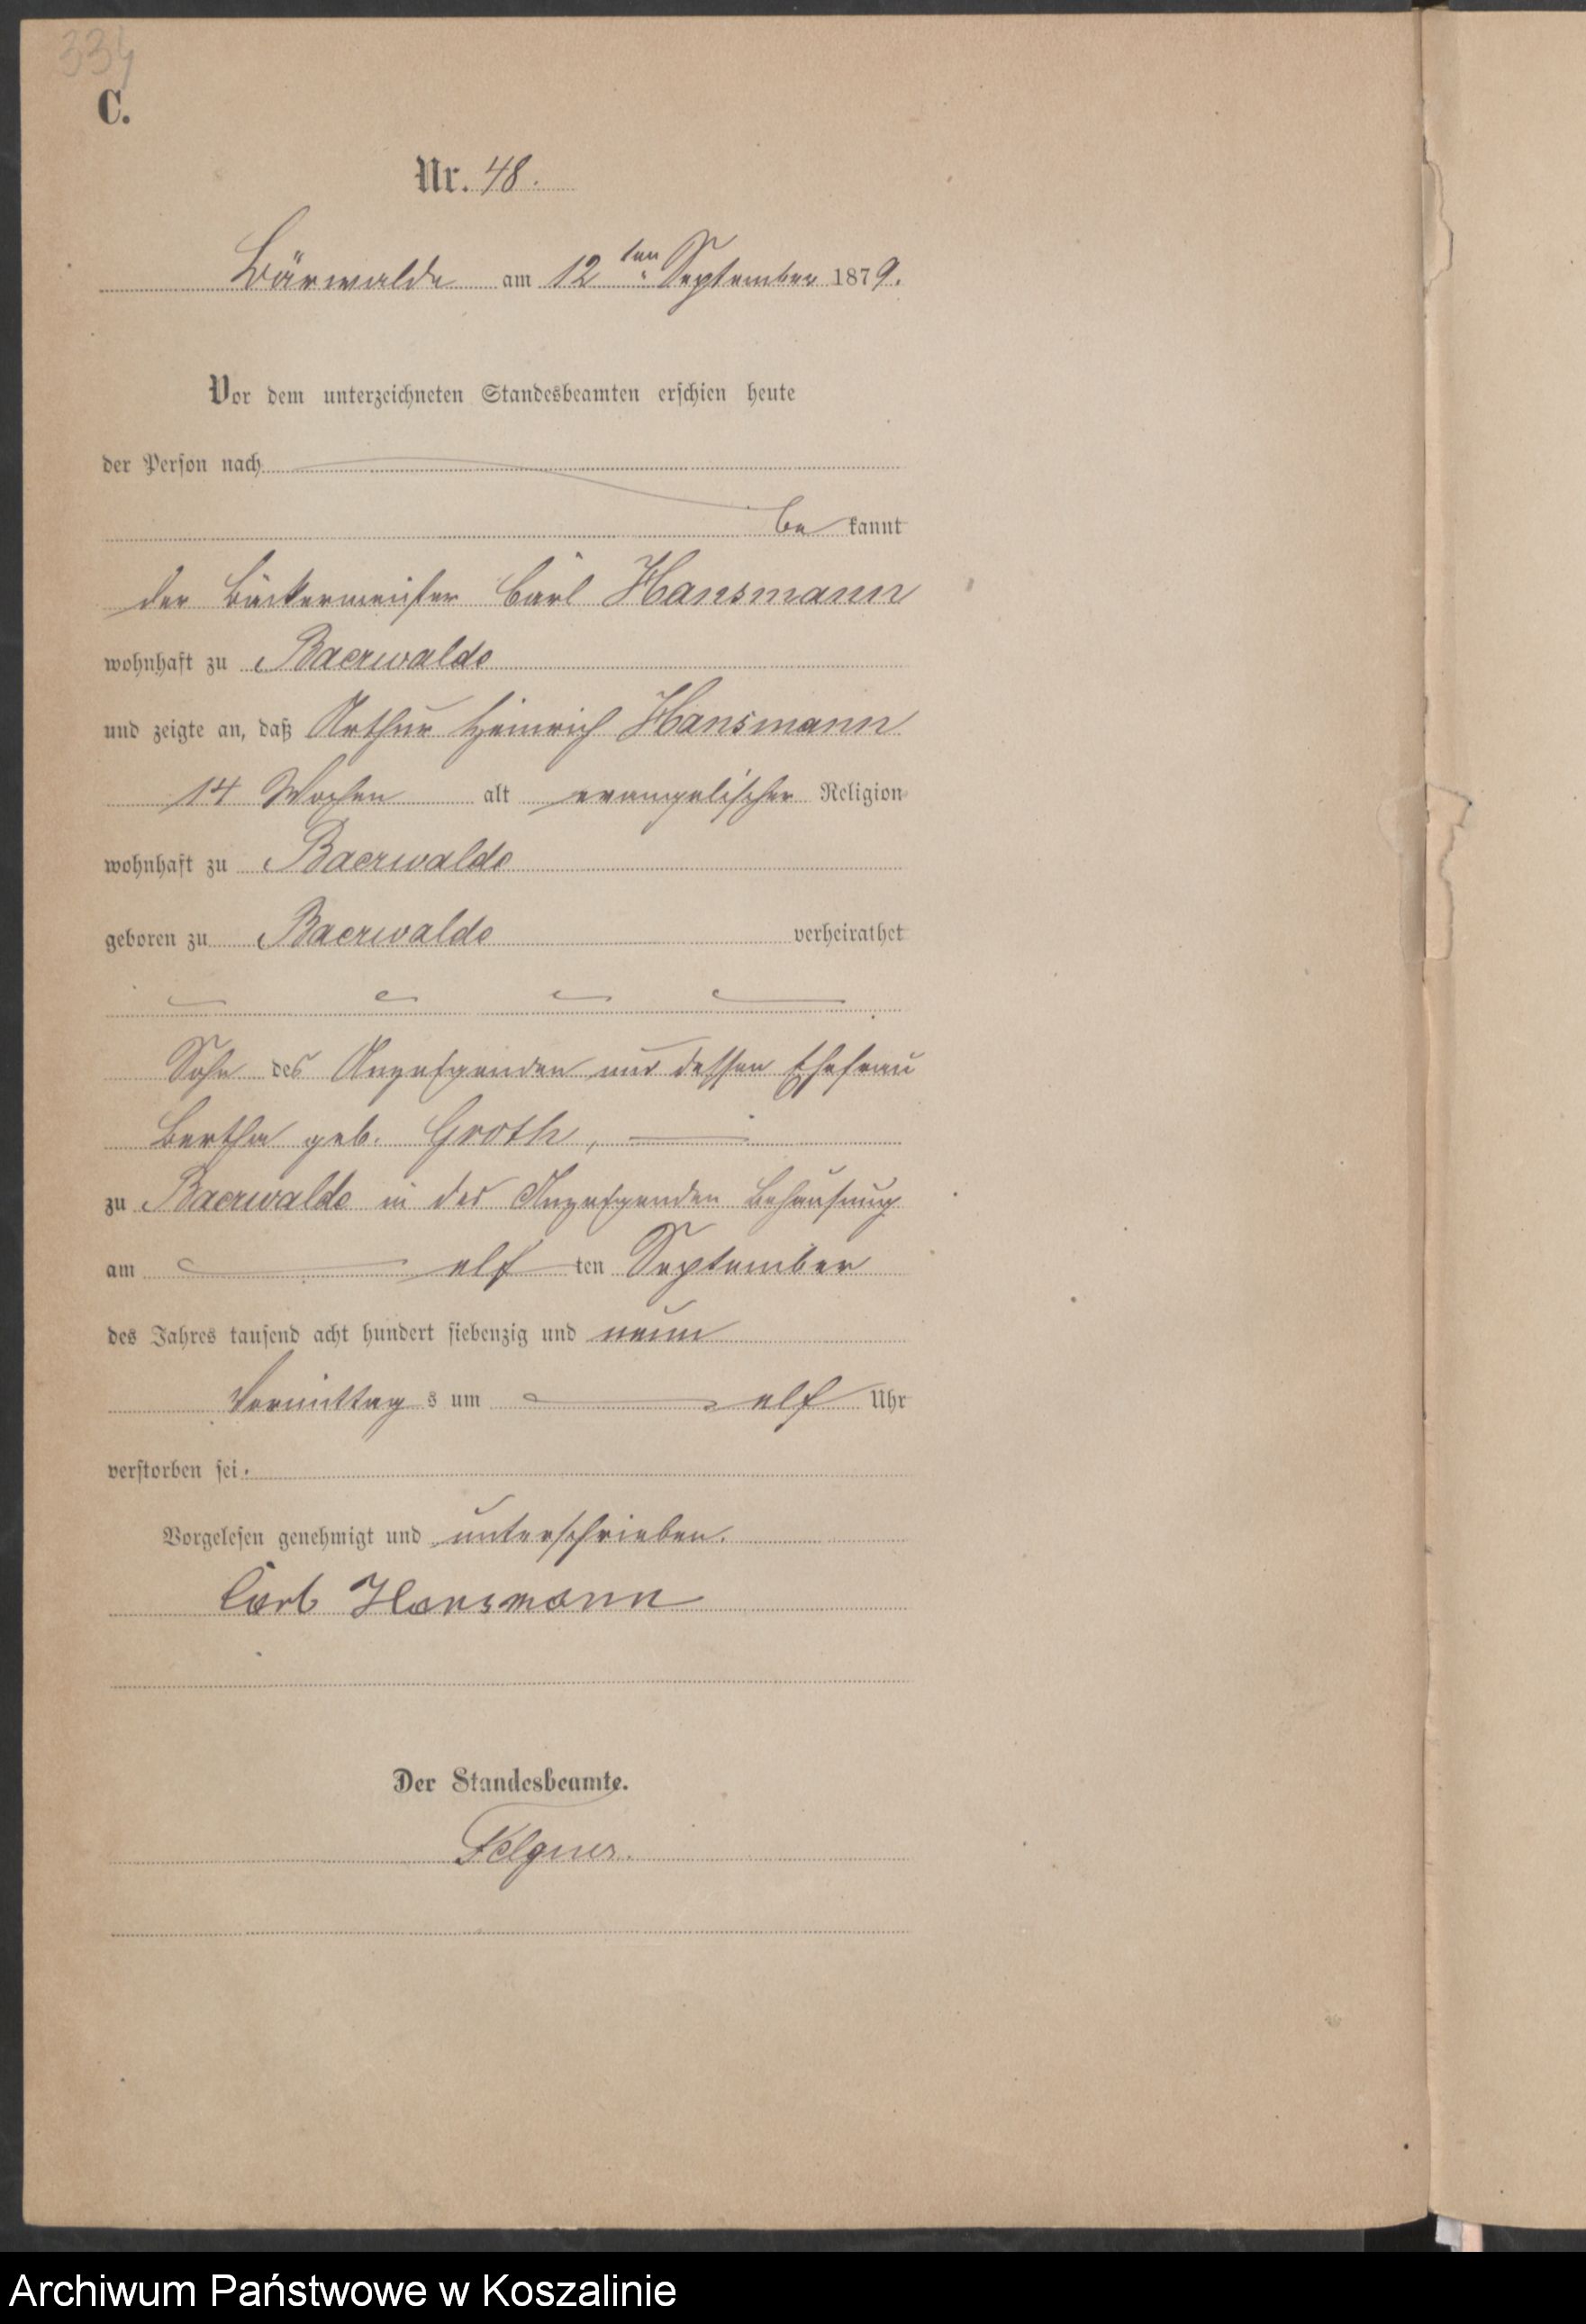 334
C.
Nr. 48.
Bärwalde am 12ten September 1879.
Vor dem unterzeichneten Standesbeamten erschien heute
der Person nach
be kannt
der Bäckermeister Carl Hansmann
wohnhaft zu Baerwalde
und zeigte an, daß Arthur Heinrich Hansmann
14 Wochen alt evangelischer Religion
wohnhaft zu Baerwalde
geboren zu Baerwalde verheirathet
Sohn des Anzeigenden und dessen Ehefrau
Bertha geb. Groth,
zu Baerwalde in des Anzeigenden Behausung
am elf ten September
des Jahres tausend acht hundert siebenzig und neun
Vormittag s um elf Uhr
verstorben sei.
Vorgelesen genehmigt und unterschrieben.
Carl Hansmann
Der Standesbeamte.
Felgner.
Archiwum Państwowe w Koszalinie